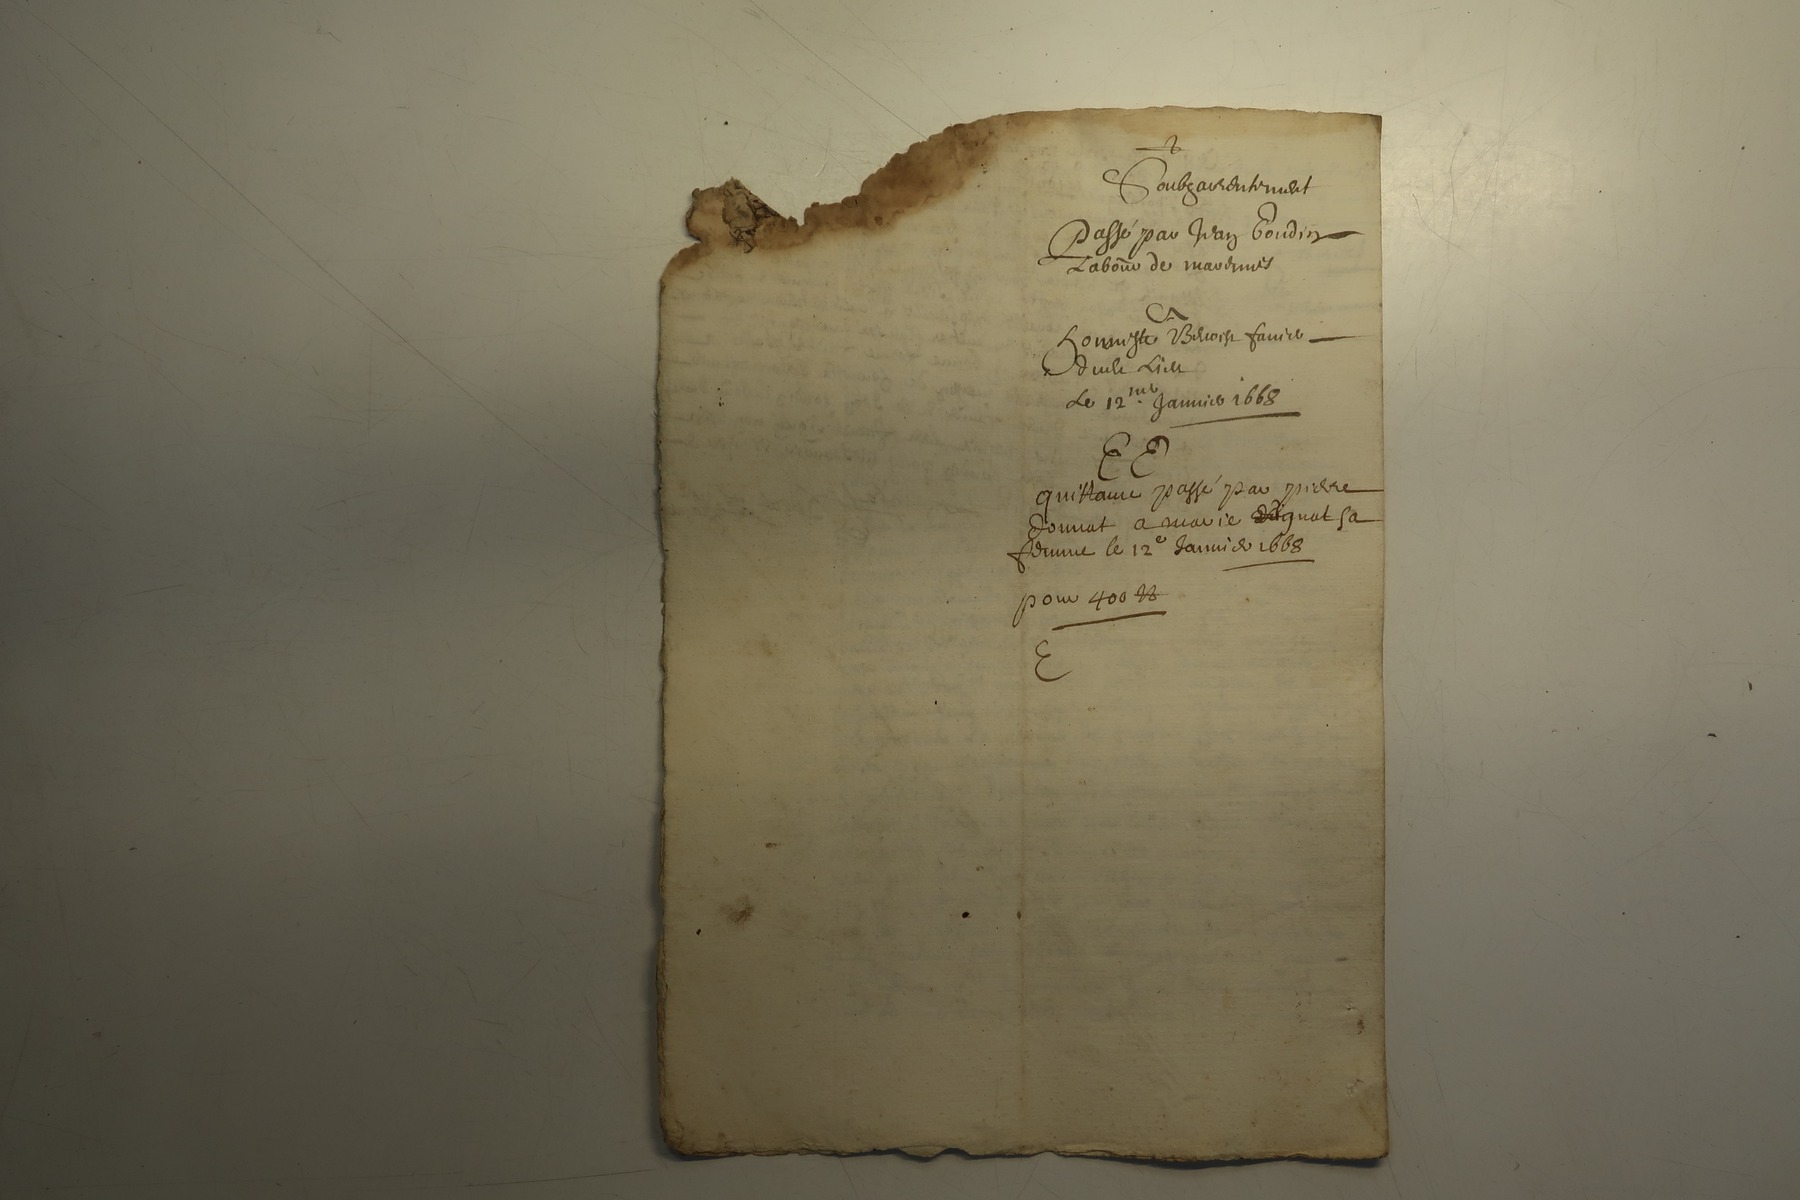 Soubzarrentement
Passé par Jean boudin
Labour de marennes
A
honneste Benoist favier
dud Lieu
Le 12me Janvier 1668
Et
quittance passé par pierre
donnat a marie gnat sa
femme le 12e Janvier 1668
pour 400 ₶